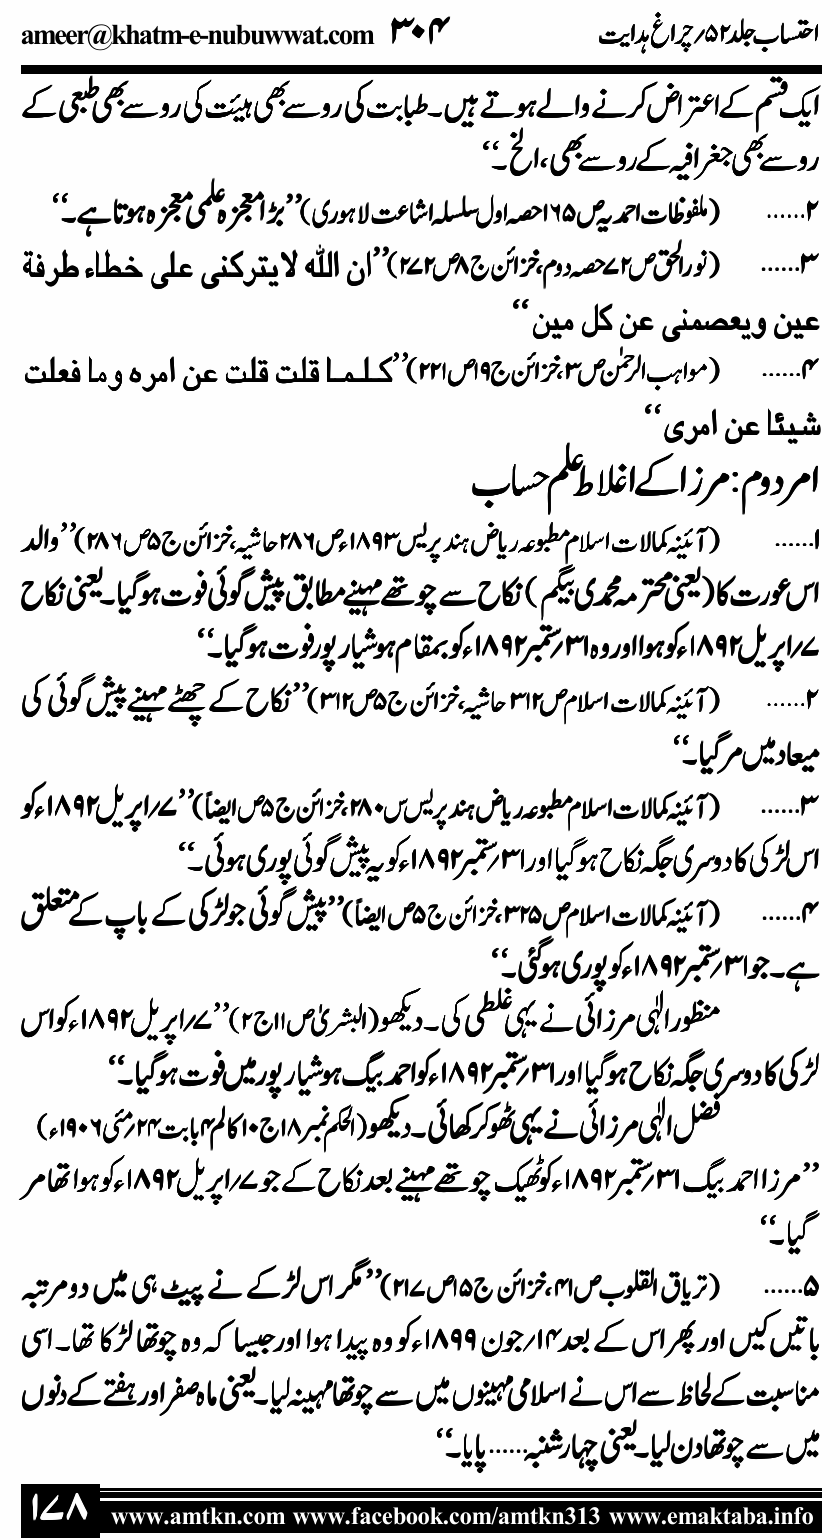 احتساب جلد ۵۲؍ چراغ ہدایت ۳۰۴ ameer@khatm-e-nubuwwat.com
ایک قسم کے اعتراض کرنے والے ہوتے ہیں۔ طبابت کی رو سے بھی ہیئت کی رو سے بھی طبعی کے
رو سے بھی جغرافیہ کے رو سے بھی، الخ۔‘‘
۲...... (ملفوظات احمدیہ ص ۱۶۵ حصہ اول سلسلہ اشاعت لاہوری) ’’بڑا معجزہ علمی معجزہ ہوتا ہے۔‘‘
۳...... (نورالحق ص ۷۲ حصہ دوم، خزائن ج ۸ ص ۲۷۲) ’’ان اللہ لا یترکنی علی خطاء طرفة
عین ویعصمنی عن کل مین‘‘
۴...... (مواہب الرحمٰن ص ۳، خزائن ج ۱۹ ص ۲۲۱) ’’کلما قلت قلت عن امره وما فعلت
شیئا عن امری‘‘
امر دوم: مرزا کے اغلاط علم حساب
۱...... (آئینہ کمالات اسلام مطبوعہ ریاض ہند پریس ۱۸۹۳ء ص ۲۸۶ حاشیہ، خزائن ج ۵ ص ۲۸۶) ’’والد
اس عورت کا (یعنی محترمہ محمدی بیگم) نکاح سے چوتھے مہینے مطابق پیش گوئی فوت ہوگیا۔ یعنی نکاح
۷؍اپریل ۱۸۹۲ء کو ہوا اور وہ ۳۱؍ستمبر ۱۸۹۲ء کو بمقام ہوشیار پور فوت ہوگیا۔‘‘
۲...... (آئینہ کمالات اسلام ص ۳۱۲ حاشیہ، خزائن ج ۵ ص ۳۱۲) ’’نکاح کے چھٹے مہینے پیش گوئی کی
میعاد میں مرگیا۔‘‘
۳...... (آئینہ کمالات اسلام مطبوعہ ریاض ہند پریس س ۲۸۰، خزائن ج ۵ ص ایضاً) ’’۷؍اپریل ۱۸۹۲ء کو
اس لڑکی کا دوسری جگہ نکاح ہوگیا اور ۳۱؍ستمبر ۱۸۹۲ء کو یہ پیش گوئی پوری ہوئی۔‘‘
۴...... (آئینہ کمالات اسلام ص ۳۲۵، خزائن ج ۵ ص ایضاً) ’’پیش گوئی جو لڑکی کے باپ کے متعلق
ہے۔ جو ۳۱؍ستمبر ۱۸۹۲ء کو پوری ہوگئی۔‘‘
منظور الٰہی مرزائی نے یہی غلطی کی۔ دیکھو (البشریٰ ص ۱۱ ج ۲) ’’۷؍اپریل ۱۸۹۲ء کو اس
لڑکی کا دوسری جگہ نکاح ہوگیا اور ۳۱؍ستمبر ۱۸۹۲ء کو احمد بیگ ہوشیار پور میں فوت ہوگیا۔‘‘
فضل الٰہی مرزائی نے یہی ٹھوکر کھائی۔ دیکھو (الحکم نمبر ۱۸ ج ۱۰ کالم ۴ بابت ۲۴؍مئی ۱۹۰۶ء)
’’مرزا احمد بیگ ۳۱؍ستمبر ۱۸۹۲ء کو ٹھیک چوتھے مہینے بعد نکاح کے جو ۷؍اپریل ۱۸۹۲ء کو ہوا تھا مر
گیا۔‘‘
۵...... (تریاق القلوب ص ۴۱، خزائن ج ۱۵ ص ۲۱۷) ’’مگر اس لڑکے نے پیٹ ہی میں دو مرتبہ
باتیں کیں اور پھر اس کے بعد ۱۴؍جون ۱۸۹۹ء کو وہ پیدا ہوا اور جیسا کہ وہ چوتھا لڑکا تھا۔ اسی
مناسبت کے لحاظ سے اس نے اسلامی مہینوں میں سے چوتھا مہینہ لیا۔ یعنی ماہ صفر اور ہفتے کے دنوں
میں سے چوتھا دن لیا۔ یعنی چہار شنبہ...... پایا۔‘‘
۱۷۸ www.amtkn.com www.facebook.com/amtkn313 www.emaktaba.info